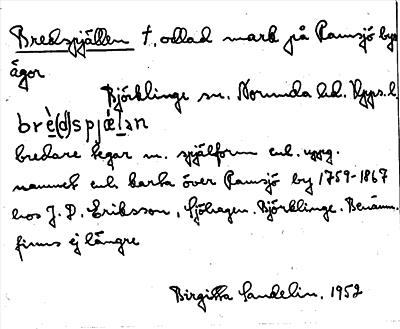 Bredspjällen †, odlad mark på Ramsjö bys
ägor
Björklinge sn. Norunda hd. Upps. l.
brè(d)spjæ̀lən
bredare tegar m. spjälform enl. uppg.
namnet enl. karta över Ramsjö by 1759-1867
hos J. D. Eriksson, Sjöhagen. Björklinge. Benämn.
finns ej längre
Birgitta Sandelin. 1952